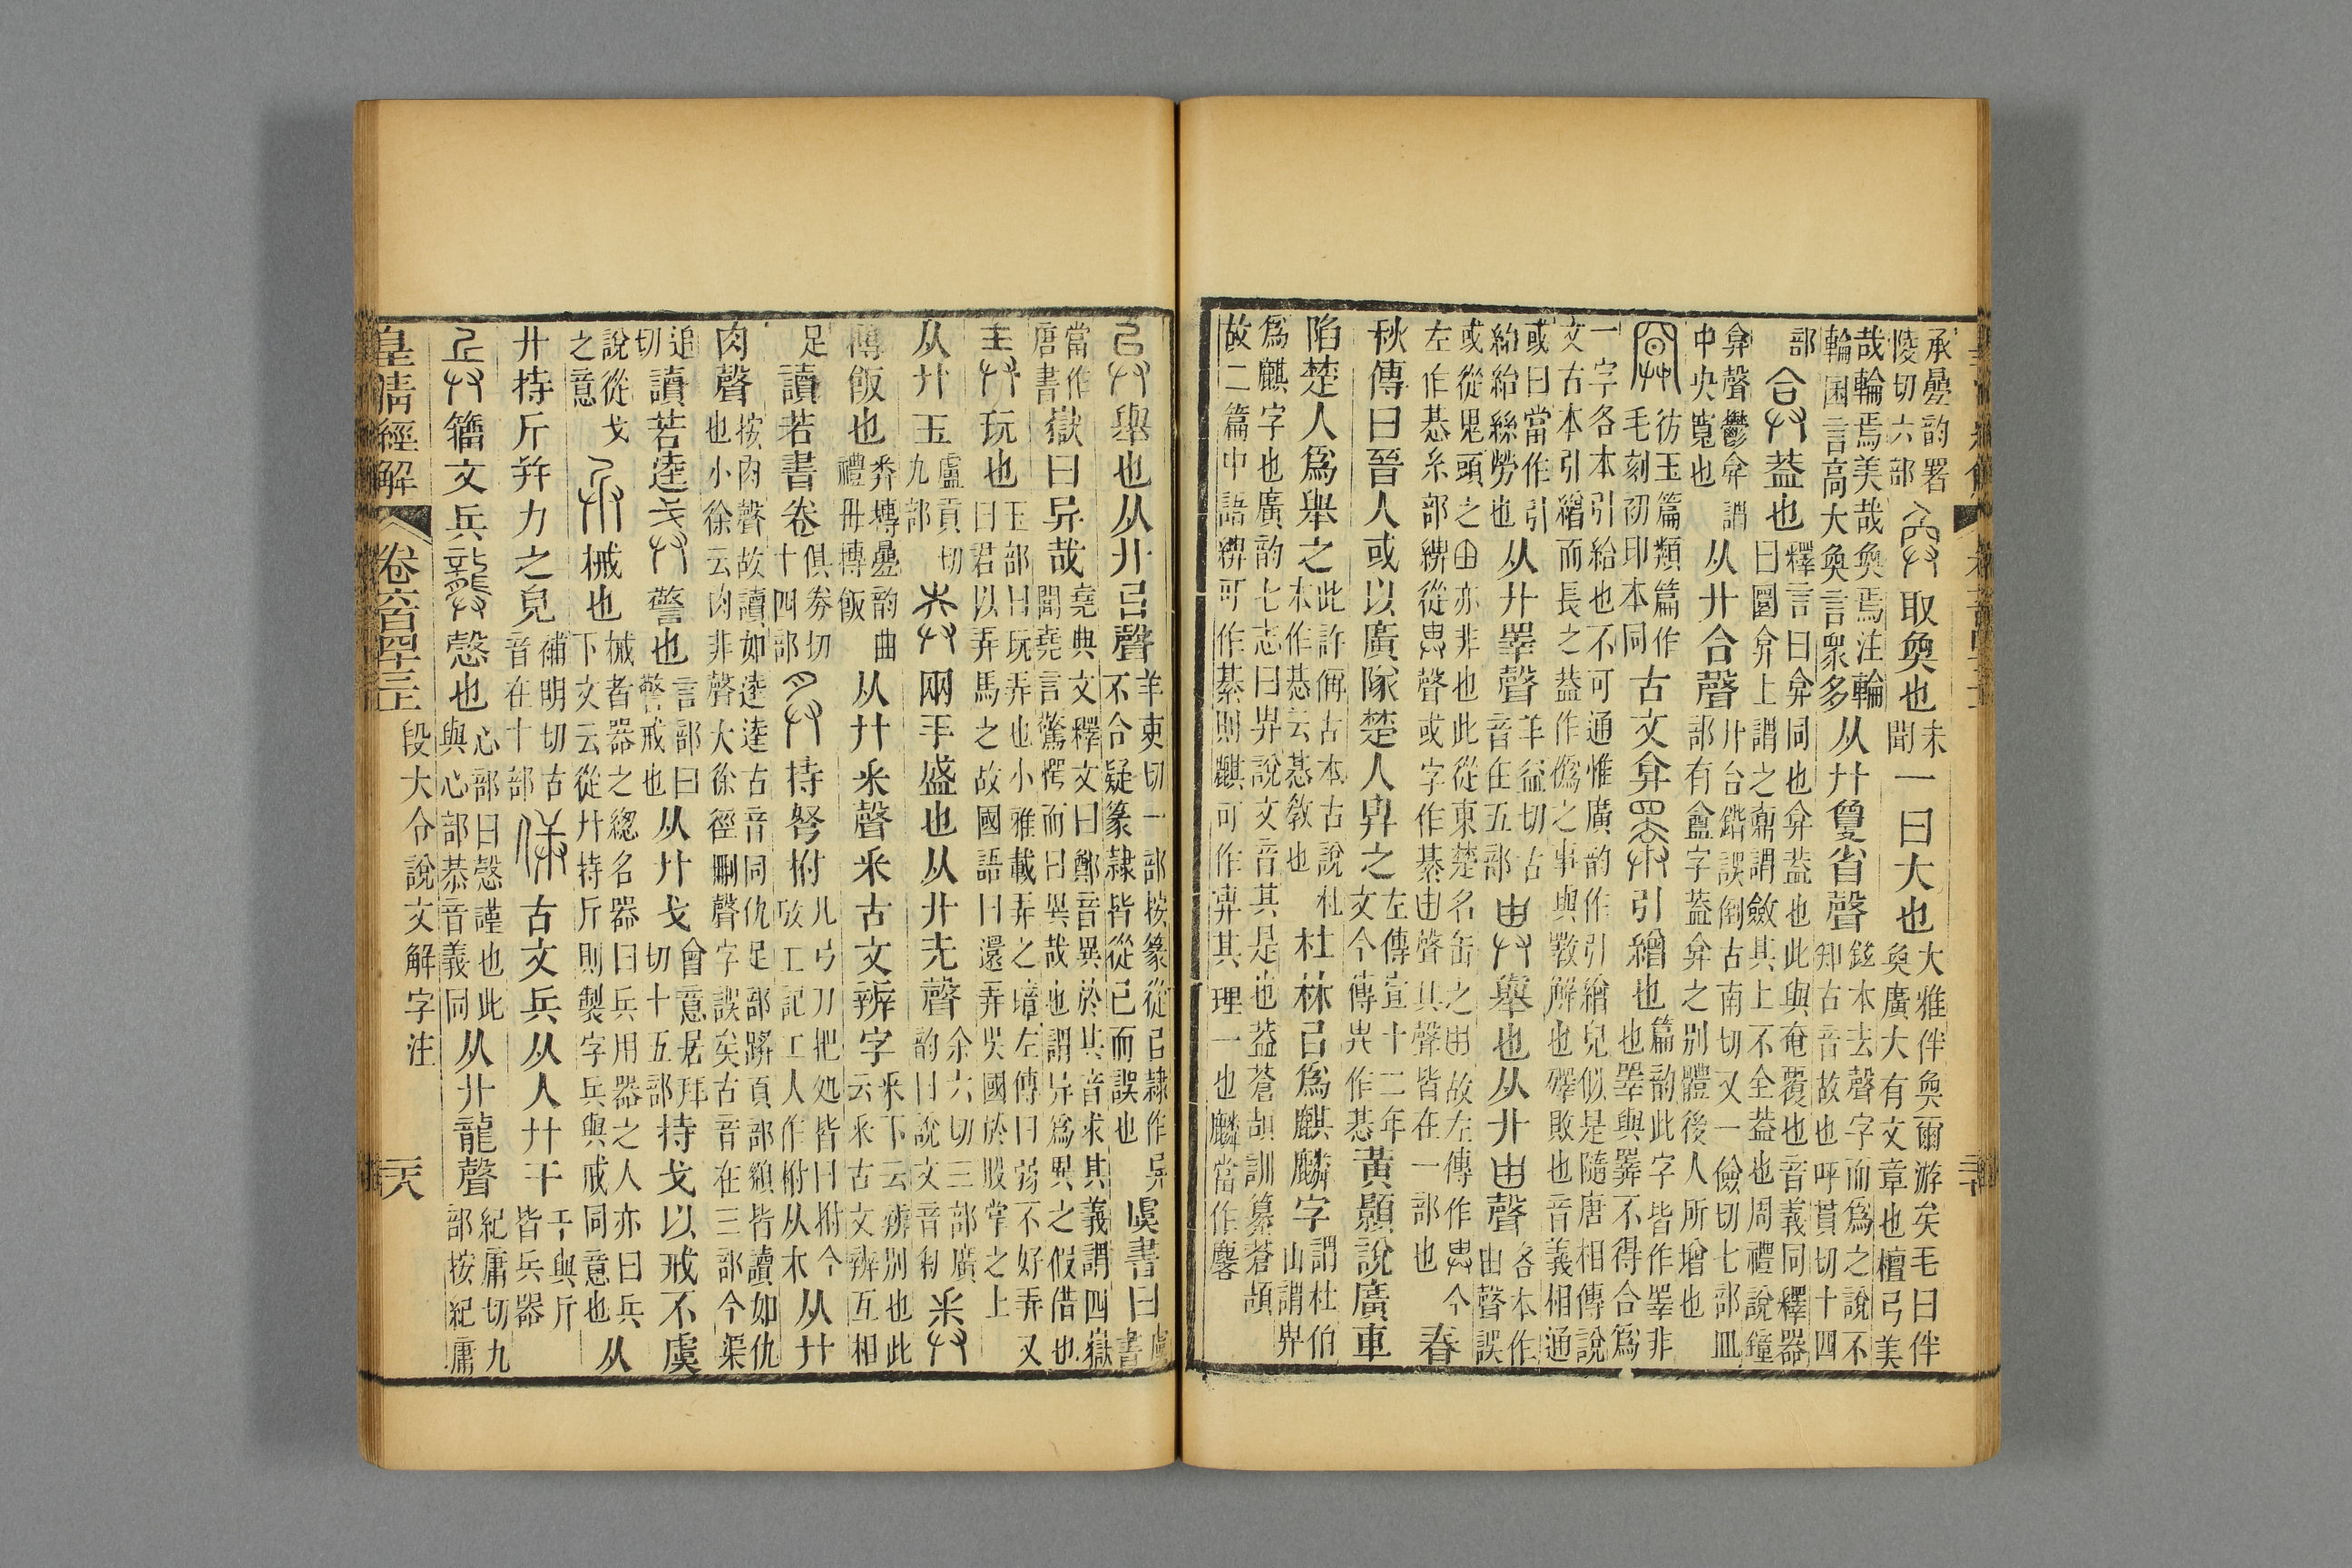 承㬪韵署陵切六部𠬞取奐也未聞一曰大也大雅伴奐爾游矣毛曰伴奐廣大有文章也檀弓美
哉輪焉美哉奐焉注輪輪囷言高大奐言衆多从廾敻省聲鉉本去聲字而爲之說不知古音故也呼貫切十四
部弇葢也釋言曰弇同也弇葢也此與奄覆也音義同釋器曰圜弇上謂之鼒謂斂其上不全葢也周禮說鐘
弇聲鬱弇謂中央寬也从廾合聲廾台鍇誤倒古南切又一儉切七部皿部有盦字葢弇之別體後人所增也
毛刻初印本同彷玉篇類篇作古文弇𥌰引繒也篇韵此字皆作睪非也睪與𥌰不得合爲
一字各本引給也不可通惟廣韵作引繒皃似是隨唐相傳說文古本引繒而長之葢作僞之事與斁解也殬敗也音義相通
或曰當作引紿紿絲勞也从廾睪聲羊益切古音在五部𢌿舉也从廾甶聲各本作由聲誤
或從鬼頭之甶亦非也此從東楚名缶之甾故左傳作𢍁今左作惎糸部綥從𢍁聲或字作綦甾聲其聲皆在一部也春
秋傳曰晉人或以廣隊楚人𢍁之左傳宣十二年文今傳𢍁作惎黃顥說廣車
陷楚人爲舉之此許偁古本古說杜本作惎云惎敎也杜林㠯爲麒麟字謂杜伯山謂𢍁
爲麒字也廣韵七志曰𢍁說文音其是也葢蒼頡訓纂蒼頡故二篇中語綥可作綦則麒可作𢍁其理一也麟當作麐
异舉也从廾㠯聲羊吏切一部按篆從㠯隸作异不合疑篆隸皆從已而誤也虞書曰虞書
當作唐書嶽曰异哉堯典文釋文曰鄭音異於其音求其義謂四嶽聞堯言驚愕而曰異哉也謂异爲異之假借也
弄玩也玉部曰玩弄也小雅載弄之璋左傳曰弱不好弄又曰君以弄馬之故國語曰還弄吳國於股掌之上
从廾玉盧貢切九部𢍏兩手盛也从廾圥聲余六切三部廣韵曰說文音匊𢍏
摶飯也𢍏摶㬪韵曲禮毋摶飯从廾釆聲釆古文辨字釆下云辨別也此云釆古文辨互相
足讀若書卷俱券切十四部𢌳持弩拊几弓刀把処皆曰拊今攷工記工人作柎从木从廾
肉聲按肉聲故讀如逵逵古音同仇足部跻頁部頯皆讀如仇也小徐云肉非聲大徐徑刪聲字誤矣古音在三部今渠
追切讀若逵戒警也言部曰警戒也从廾戈會意居拜切十五部持戈以戒不虞
說從戈之意兵械也械者器之緫名器曰兵用器之人亦曰兵下文云從廾持斤則製字兵與戒同意也从
廾持斤幷力之皃補明切古音在十部𠈯古文兵从人廾干干與斤皆兵器
籒文兵龏愨也心部曰愨謹也此與心部恭音義同从廾龍聲紀庸切九部按紀庸
皇清經解 卷六百四十三上 段大令說文解字注 二六